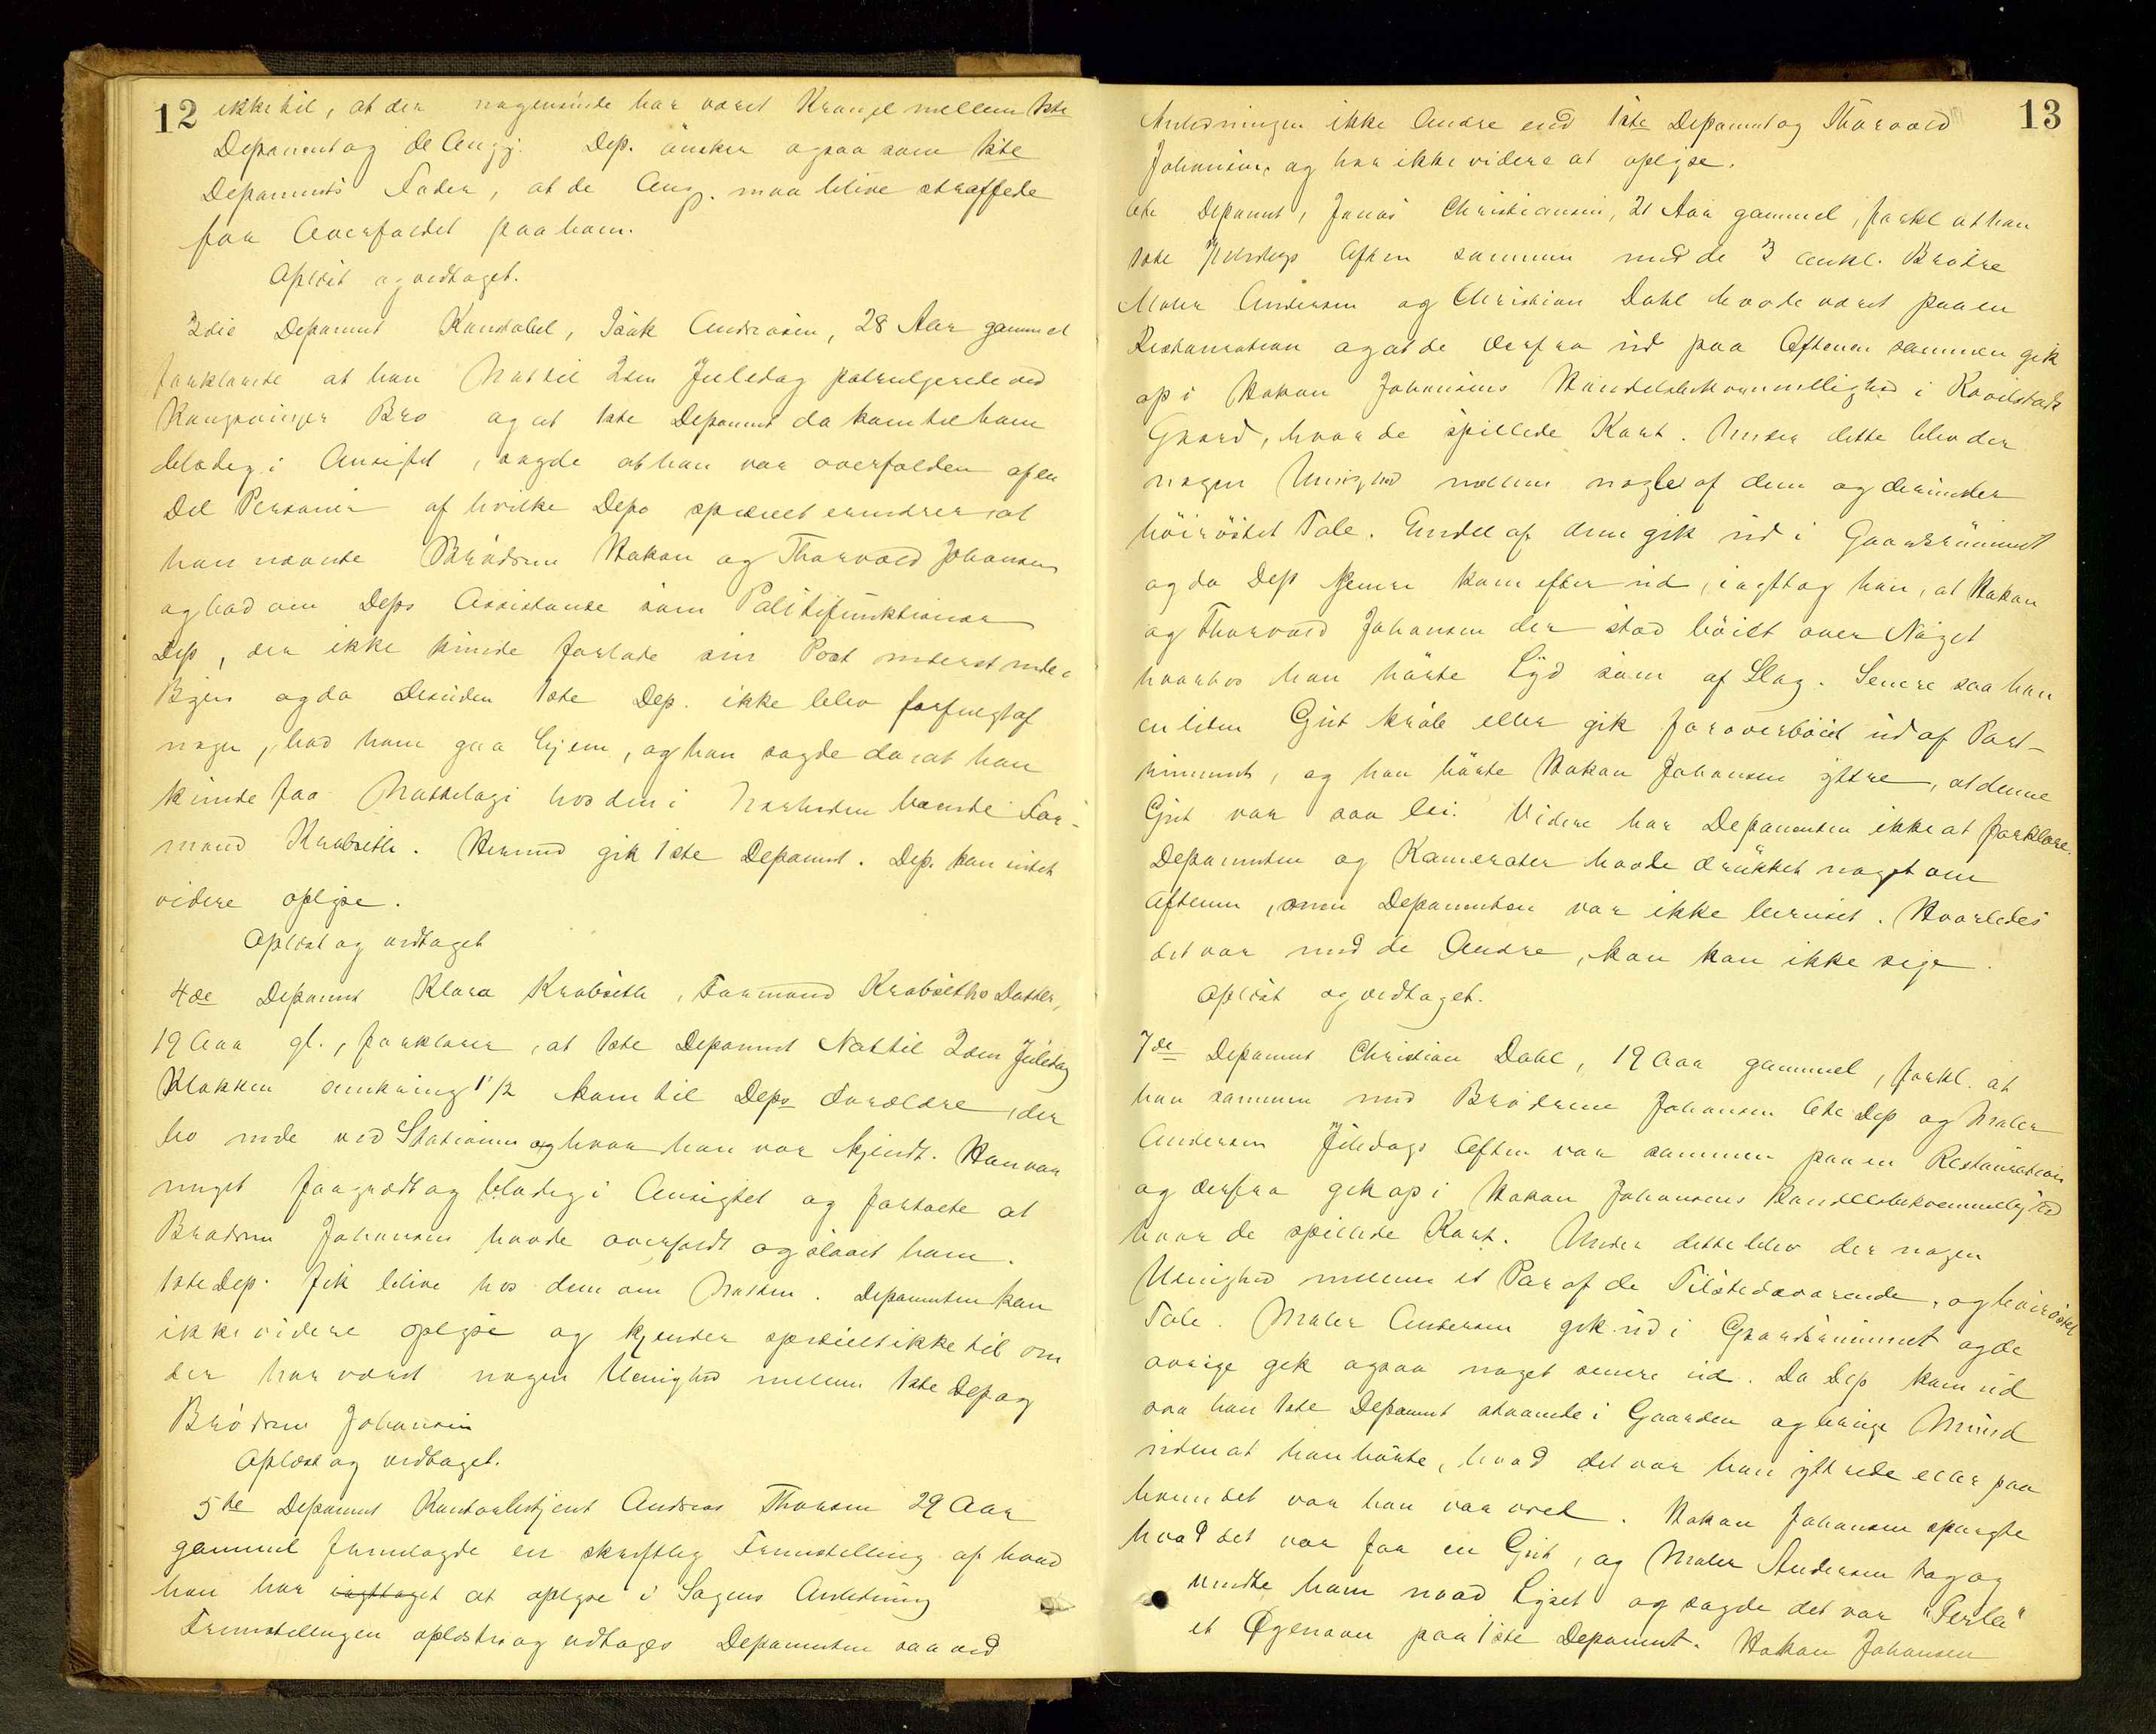 12 ikke til, at der nogensinde har været Krangel mellem 1ste
Deponent og de Angj. Dep. ønsker ogsaa som 1ste
Deponents Fader, at de Angj. maa blive straffede
for Overfaldet paa ham.
Oplæst og vedtaget.
3die Deponent Konstabel, Isak Andreasen, 28 Aar gammel
forklarede at han Nat til 2den Juledag patruljerede ved
Kongsvinger Bro og at 1ste Deponent da kom til ham
blodig i Ansigtet, sagde at han var overfalden af en
Del Personer af hvilke Depo specielt erindrer at
han nævnte Brødrene Hakon og Thorvald Johansen
og bad om Deps Assistance som Politifunktionær
Dep, der ikke kunde forlade sin Post nederst nede i
Byen og da desuden 1ste Dep. ikke blev forfulgt af
nogen, bad ham gaa hjem, og han sagde da at han
kunde faa Natteloge hos den i Nærheden boende For-
mand Krabseth. Hermed gik 1ste Deponent. Dep. kan intet
videre oplyse.
Oplæst og vedtaget
4de Deponent Klara Krabseth, Formand Krabseths Datter,
19 Aar gl., forklarer, at 1ste Deponent Nat til 2den Juledag
Klokken omkring 1 1/2 kom til Deps Forældre, der
bo nede ved Stationen og hvor han var kjendt. Han var
meget forgrædt og blodig i Ansigtet og fortalte at
Brødrene Johansen havde overfaldt og slaaet ham.
1ste Dep. fik blive hos dem om Natten. Deponenten kan
ikke videre oplyse og kjender specielt ikke til om
der har været nogen Uenighed mellem 1ste Dep og
Brødrene Johansen
Oplæst og vedtaget.
5te Deponent Kontorbetjent Andreas Thoresen 29 Aar
gammel fremlagde en skriftlig Fremstilling af hvad
han har iagttaget at oplyse i Sagens Anledning
Fremstillingen oplæstes og vedtoges Deponenten saa ved
13
Anledningen ikke Andre end 1ste Deponent og Thorvald
Johansen, og har ikke videre at oplyse.
6te Deponent, Jonas Christiansen, 21 Aar gammel, forkl. at han
1ste Juledags Aften sammen med de 3 ankl. Brødre
Maler Andersen og Christian Dahl havde været paa en
Restauration og at de derfra ud paa Aftenen sammen gik
op i Hakon Johansens Handelsbekvemmelighed i Kvilstads
Gaard, hvor de spillede Kort. Under dette blev der
nogen Uenighed mellem nogle af dem og derunder
høirøstet Tale. Endel af dem gik ud i Gaardsrummet
og da Dep senere kom efter ud, iagttog han, at Hakon
og Thorvald Johansen der stod bøiet over Noget
hvorhos han hørte Lyd som af Slag. Senere saa han
en liten Gut krøb eller gik foroverbøiet ud af Port-
rummet, og han hørte Hakon Johansen yttre, at denne
Gut var saa lei. Videre har Deponenten ikke at forklare.
Deponenten og Kamerater havde drukket noget om
Aftenen, men Deponenten var ikke beruset. Hvorledes
det var med de Andre, kan han ikke sige.
Oplæst og vedtaget.
7de Deponent Christian Dahl, 19 Aar gammel, forkl. at
han sammen med Brødrene Johansen 6te Dep og Maler
Andersen Juledags Aften var sammen paa en Restauration
og derfra gik op i Hakon Johansens Handelsbekvemmelighed
hvor de spillede Kort. Under dette blev der nogen
Uenighed mellem et Par af de Tilstedeværende, og høirøstet
Tale. Maler Andersen gik ud i Gaardsrummet og de
øvrige gik ogsaa noget senere ud. Da Dep kom ud
saa han 1ste Deponent staaende i Gaarden og bruge Mund
uden at han hørte, hvad det var han yttrede eller paa
hvem det var han var vred. Hakon Johansen spurgte
hvad det var for en Gut, og Maler Andersen tog og
vendte ham mod Lyset og sagde det var "Perla"
et Øgenavn paa 1ste Deponent. Hakon Johansen